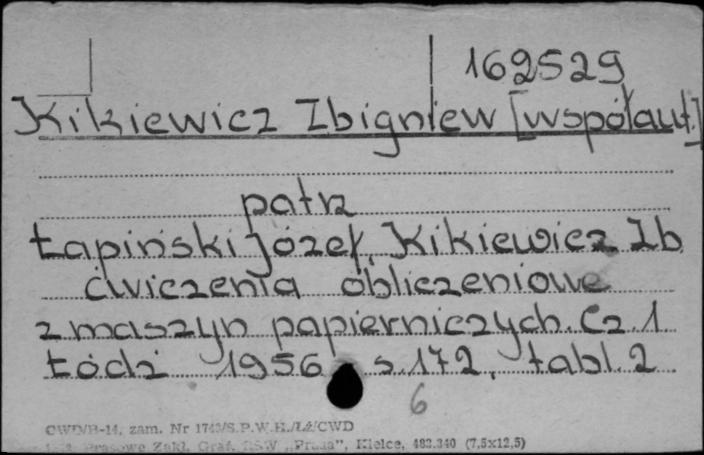 162529
Kikiewicz Zbigniew [współaut.]
patrz
Łapiński Józef, Kikiewicz Zb
ćwiczenia obliczeniowe
z maszyn papierniczych. Cz 1
Łódź 1956 s. 172, tabl. 2
6
CWD/B-14, zam. Nr /S.P.W.H./Lż/CWD
Prasowe Zakł. Graf. RSW „Prasa”, Kielce, 482.340 (7,5x12,5)